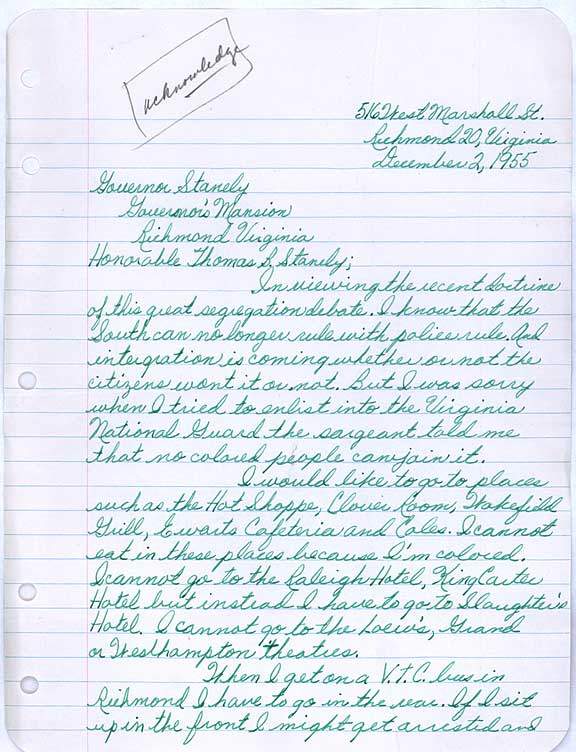 acknowledge
516 West Marshall St.
Richmond 20, Virginia
December 2, 1955
Governor Stanely
Governor's Mansion
Richmond Virginia
Honorable Thomas B. Stanely;
In viewing the recent doctrine
of this great segregation debate. I know that the
South can no longer rule with police rule. And
intergration is coming whether or not the
citizens wont it or not. But I was sorry
when I tried to enlist into the Virginia
National Guard the sargeant told me
that no colored people can join it.
I would like to go to places
such as the Hot Shoppe, Clover Room, Wakefield
Grill, Ewarts Cafeteria and Coles. I cannot
eat in these places because I'm colored.
I cannot go to the Raleigh Hotel, King Carter
Hotel but instead I have to go to Slaughter's
Hotel. I cannot go to the Loew's, Grand
or Westhampton theatres.
When I get on a V.T.C. bus in
Richmond I have to go in the rear. If I sit
up in the front I might get arrested and